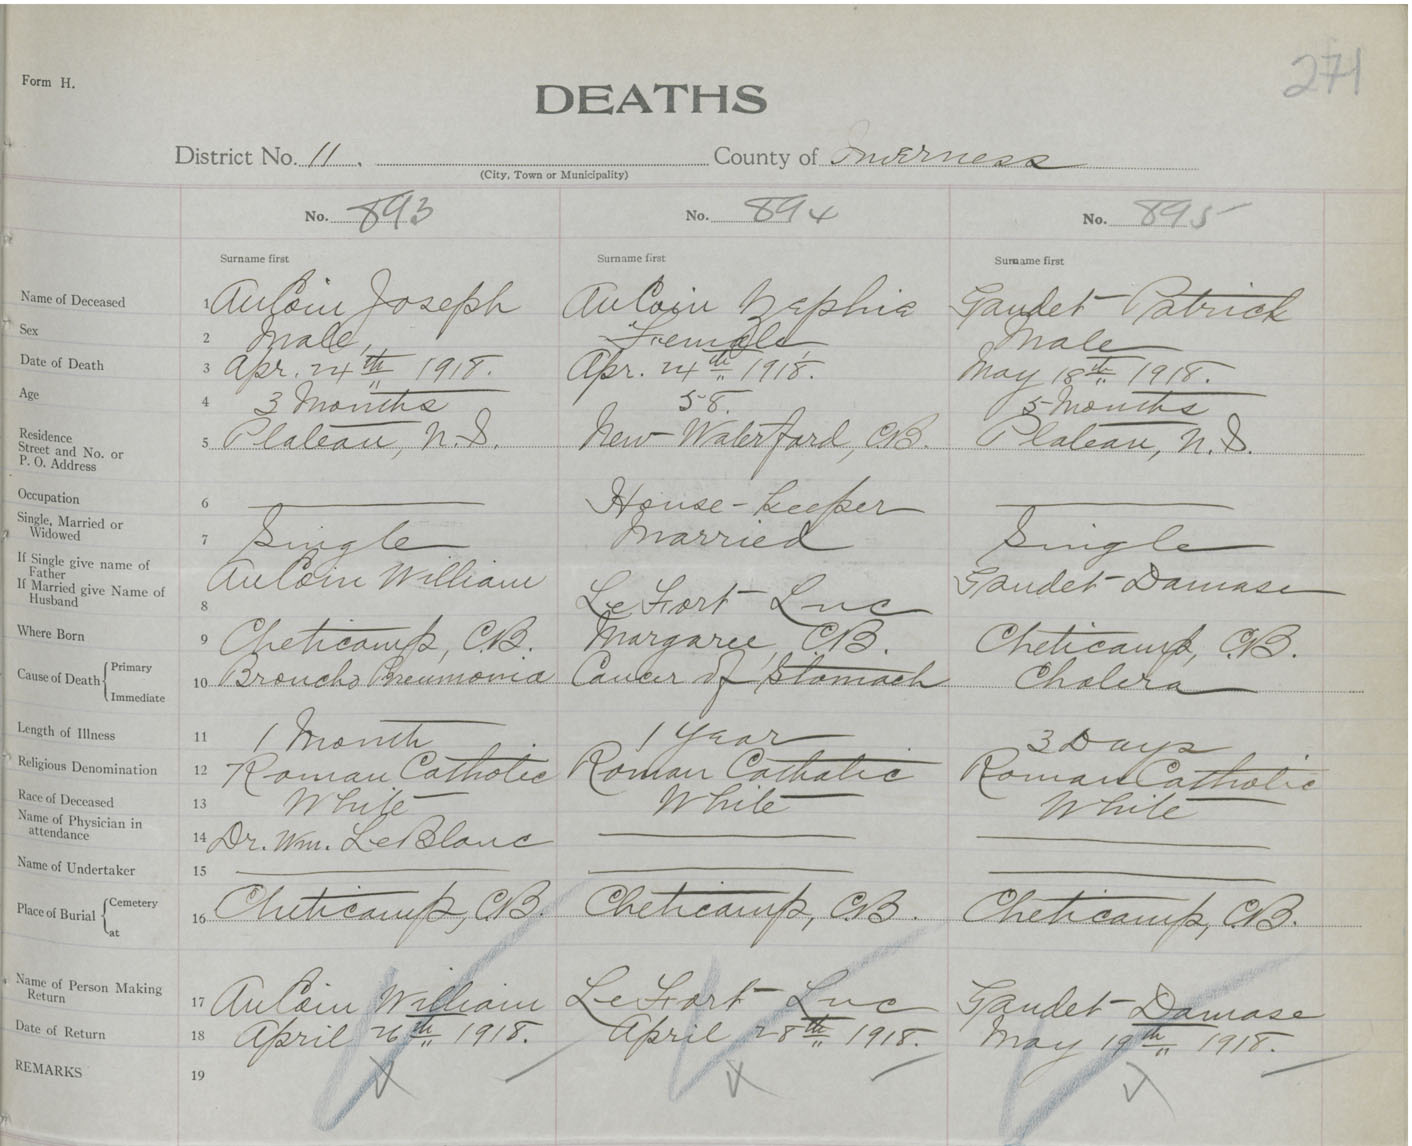 271
Form H.
DEATHS
District No. 11. County of Inverness
(City, Town or Municipality)
No. 893 No. 894 No. 895
Surname first Surname first Surname first
Name of Deceased 1 AuCoin Joseph AuCoin Zephie Gaudet Patrick
Sex 2 Male Female Male
Date of Death 3 Apr. 24th 1918. Apr. 24th 1918. May 18th 1918.
Age 4 3 Months 58. 5 Months
Residence
Street and No. or
P. O. Address 5 Plateau, N.S. New Waterford, C.B. Plateau, N.S.
Occupation 6 House-keeper
Single, Married or
Widowed 7 Single Married Single
If Single give name of
Father AuCoin William Gaudet Damase
If Married give Name of
Husband 8 LeFort Luc
Where Born 9 Cheticamp, C.B. Margaree, C.B. Cheticamp, C.B.
Cause of Death Primary
Immediate 10 Broncho Pneumonia Cancer of Stomach Cholera
Length of Illness 11 1 Month 1 Year 3 Days
Religious Denomination 12 Roman Catholic Roman Catholic Roman Catholic
Race of Deceased 13 White White White
Name of Physician in
attendance 14 Dr. Wm. LeBlanc
Name of Undertaker 15
Place of Burial Cemetery
at 16 Cheticamp, C.B. Cheticamp, C.B. Cheticamp, C.B.
Name of Person Making
Return 17 AuCoin William LeFort Luc Gaudet Damase
Date of Return 18 April 26th 1918. April 28th 1918. May 19th 1918.
REMARKS 19